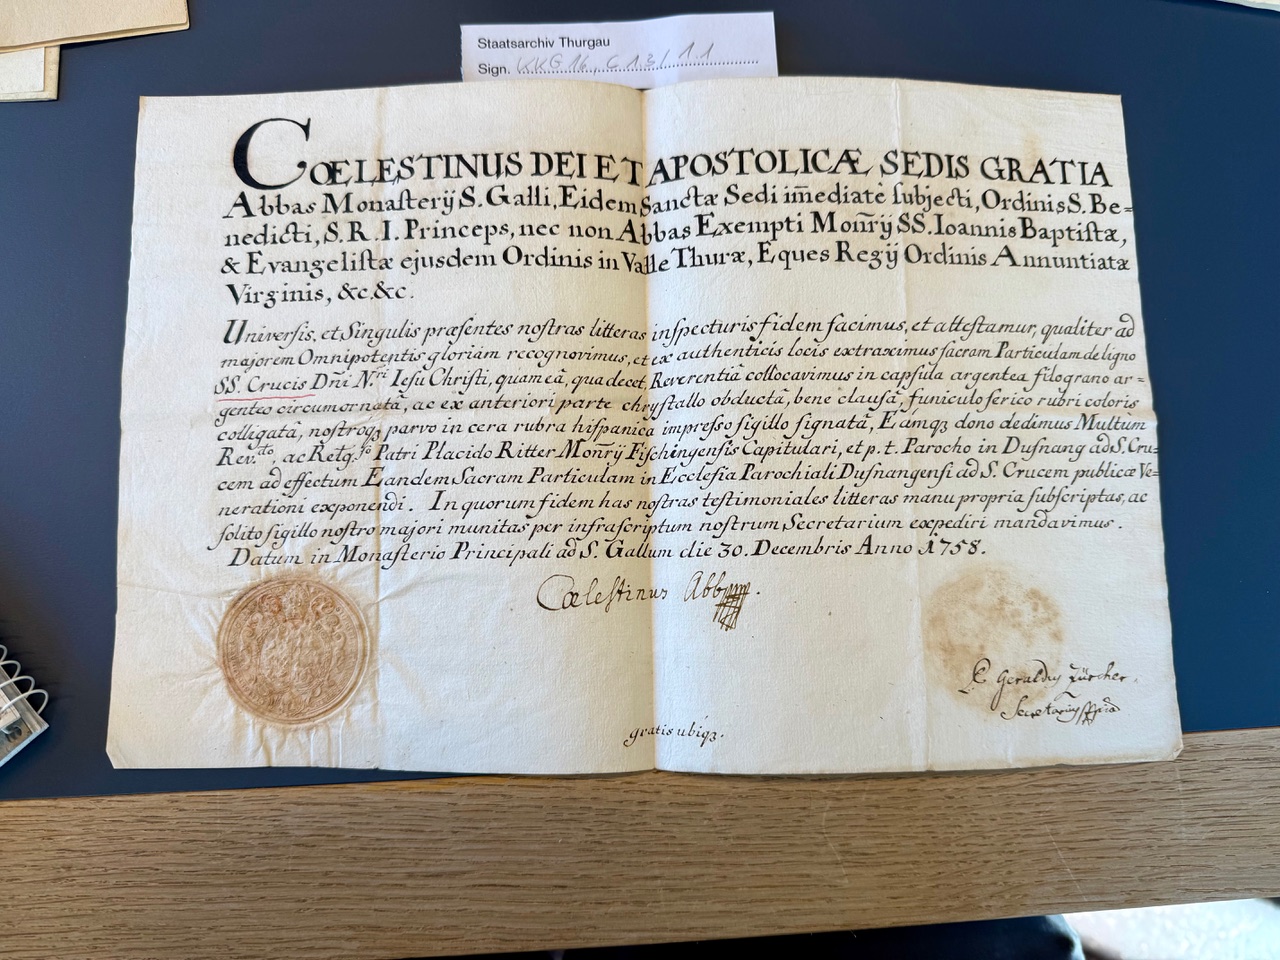 Staatsarchiv Thurgau
Sign. KKG 16, C 13/ 1.1
CŒLESTINUS DEI ET APOSTOLICÆ SEDIS GRATIA
Abbas Monasterÿ S. Galli, Eidem Sanctæ Sedi im̄ediatè subjecti, Ordinis S. Be=
nedicti, S. R. I. Princeps, nec non Abbas Exempti Mon̄rÿ SS. Ioannis Baptistæ,
& Evangelistæ ejusdem Ordinis in Valle Thuræ, Eques Regÿ Ordinis Annuntiatæ
Virginis, &c.&c.
Universis, et Singulis præsentes nostras litteras inspecturis fidem facimus, et attestamur, qualiter ad
majorem Omnipotentis gloriam recognovimus, et ex authenticis locis extraximus sacram Particulam de ligno
SS. Crucis Dn̄i N.ri Iesu Christi, quam eâ, qua decet, Reverentiâ collocavimus in capsula argentea filograno ar=
genteo circumornatâ, ac ex anteriori parte chrystallo obductâ, bene clausâ, funiculo serico rubri coloris
colligatâ, nostroqꝫ parvo in cera rubra hispanica impresso sigillo signatâ, Eâmqꝫ dono dedimus Multùm
Rev.do, ac Relg.so Patri Placido Ritter Mon̄rÿ Fischingensis Capitulari, et p. t. Parocho in Dusnang ad S. Cru=
cem ad effectum Eandem Sacram Particulam in Ecclesia Parochiali Dusnangensi ad S. Crucem publicæ Ve=
nerationi exponendi. In quorum fidem has nostras testimoniales litteras manu propria subscriptas, ac
solito sigillo nostro majori munitas per infrascriptum nostrum Secretarium expediri mandavimus.
Datum in Monasterio Principali ad S. Gallum die 30. Decembris Anno 1758.
Cœlestinus Abb
P. Geraldus Zürcher
Secretarius
gratis ubiqꝫ.